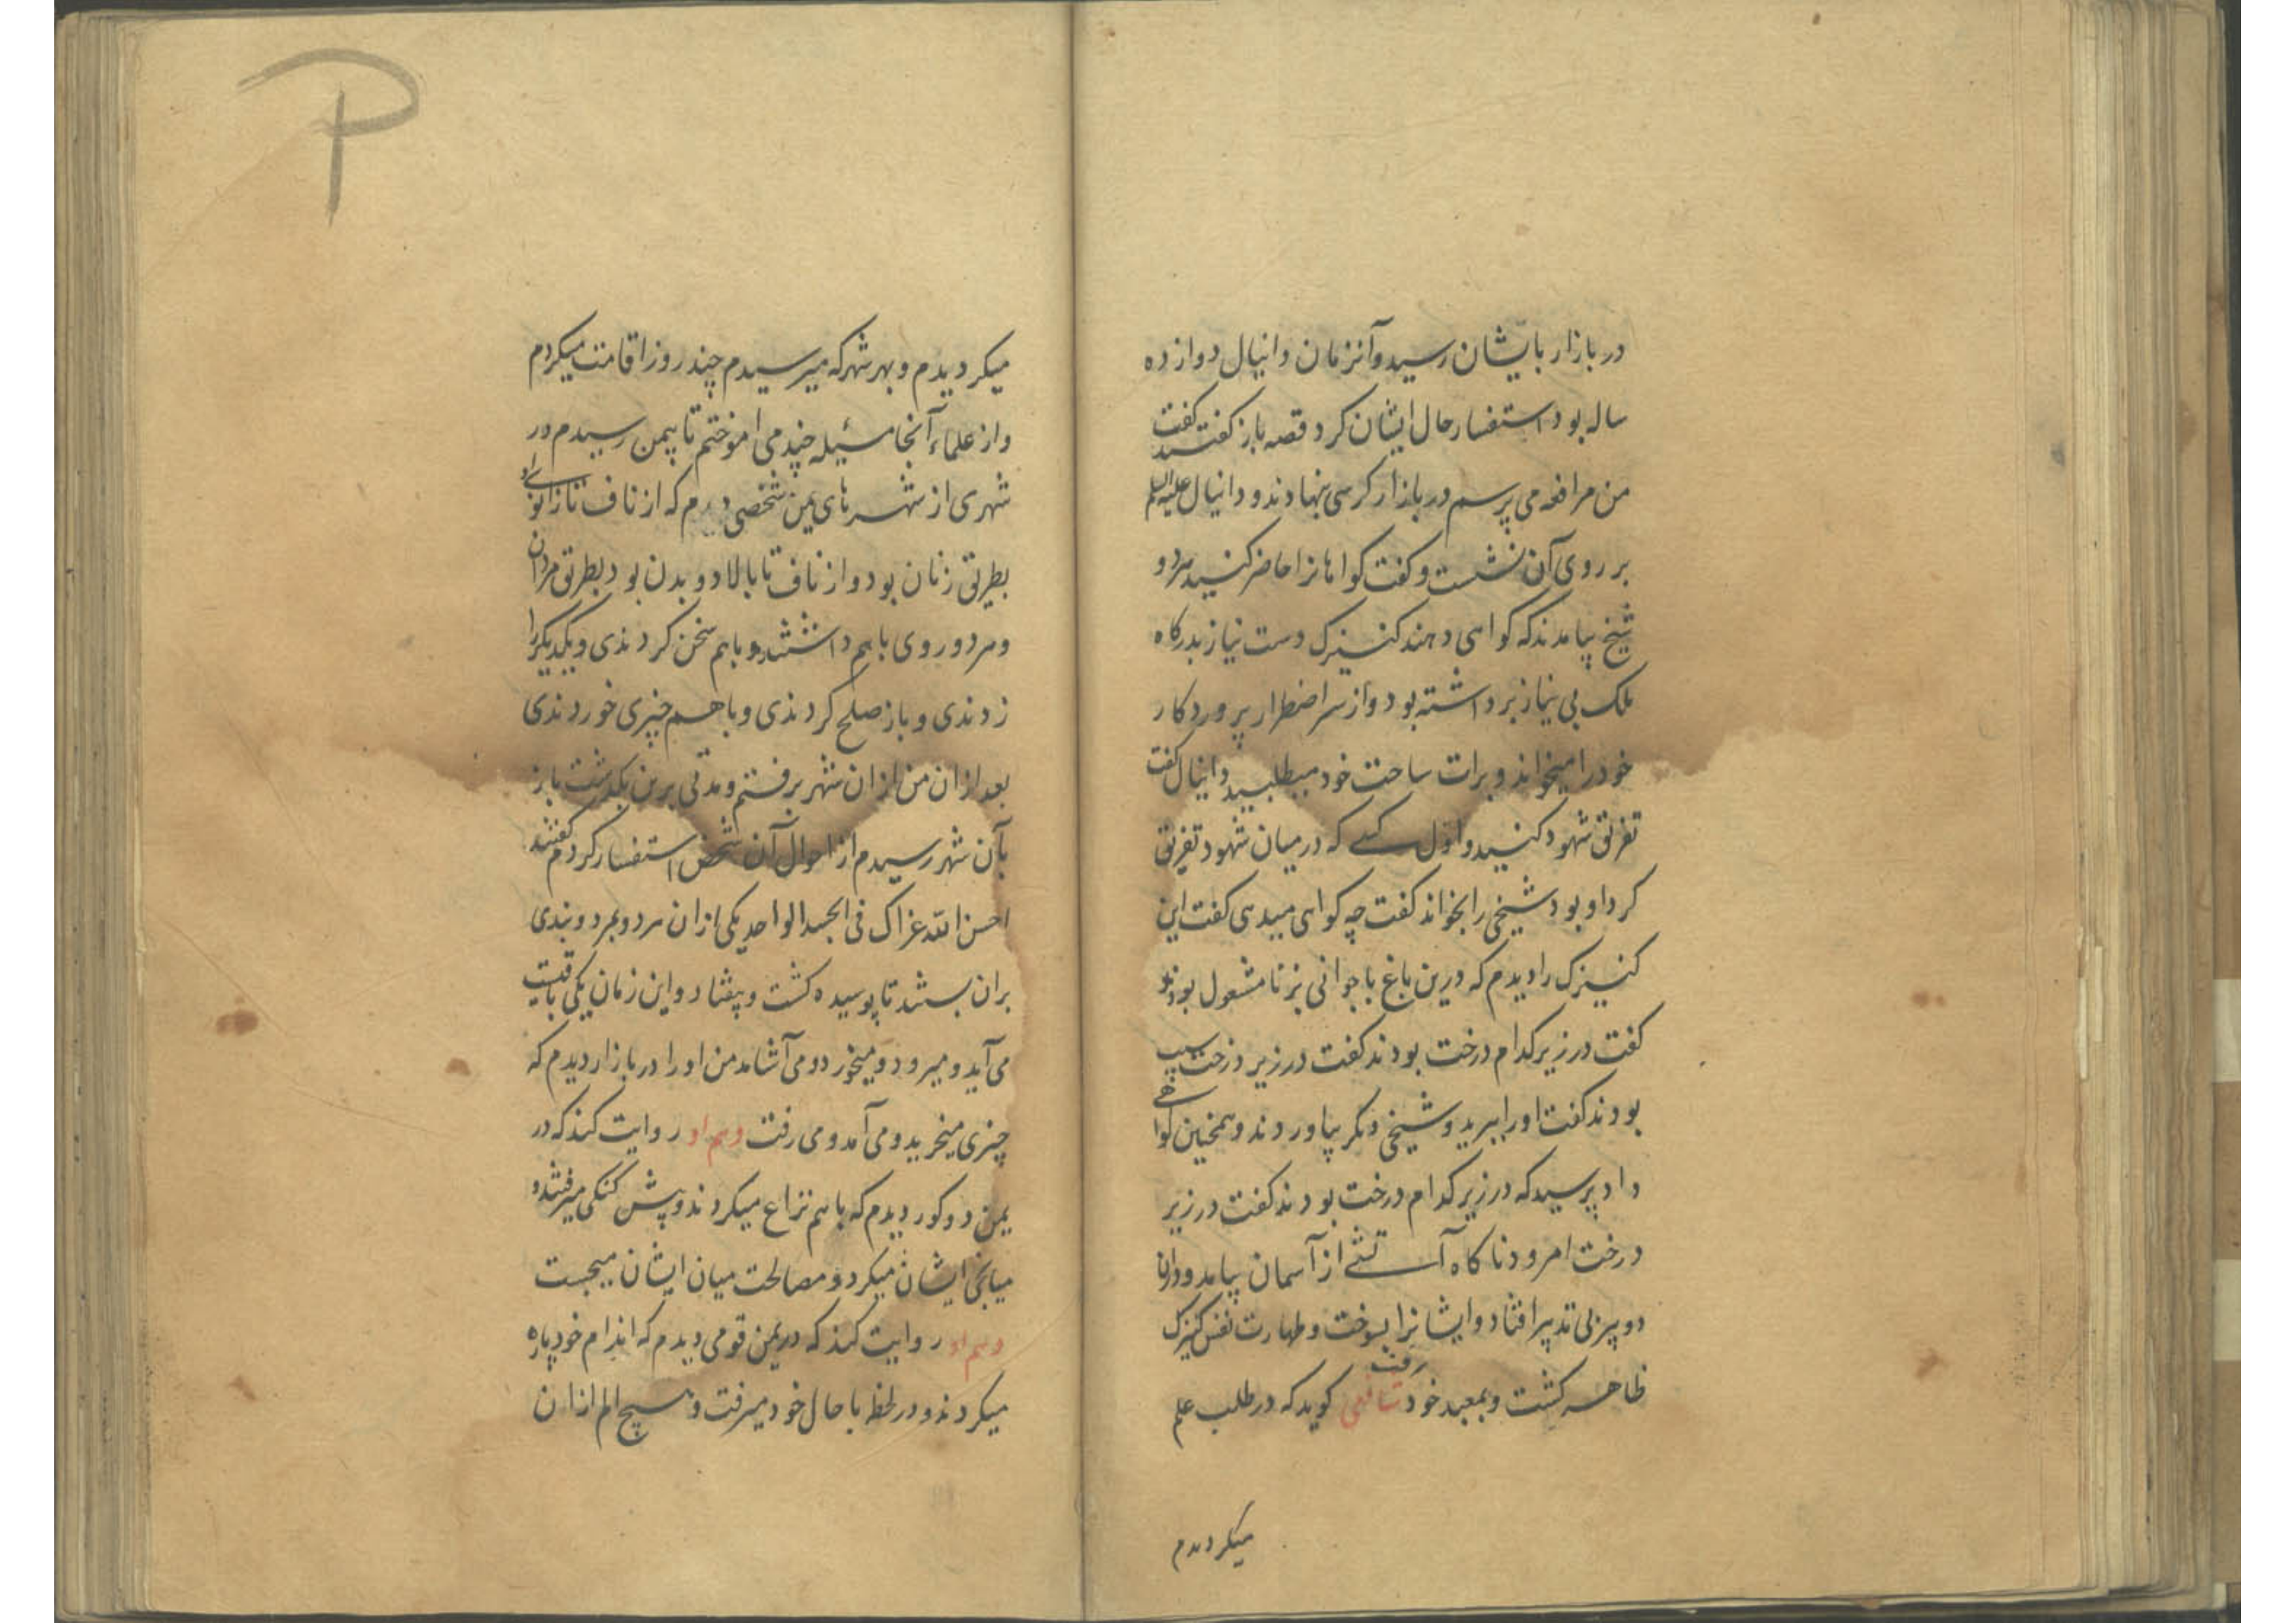 در بازار بایشان رسید و آنزمان دانیال دوازده
ساله بود استفسار حال ایشان کرد قصه باز گفتند گفت
من مرافعه می پرسم در بازار کرسی بنهادند و دانیال علیه السلم
بر روی آن نشست و کفت کواهانرا حاضر کنید هر دو
شیخ بیامدند که کواهی دهند کنیزک دست نیاز بدرکاه
ملک بی نیاز برداشته بود و از سر اضطرار پروردکار
خود را میخواند و برات ساحت خود میطلبید دانیال کفت
تفریق شهود کنید و اول کسی که در میان شهود تفریق
کرد او بود شیخی را بخواند کفت چه کواهی میدهی کفت این
کنیزک را دیدم که درین باغ با جوانی بزنا مشغول بودند
کفت در زیر کدام درخت بودند کفت در زیر درخت سیب
بودند کفت او را ببرید و شیخی دیکر بیاوردند و همچنین کواهی
داد پرسید که در زیر کدام درخت بودند کفت در زیر
درخت امرود ناکاه آتشی از آسمان بیامد و دران
دو پیر بی تدبیر افتاد و ایشانرا بسوخت و طهارت نفس کنیزک
ظاهر کشت و بمعبد خود رفت شافعی کوید که در طلب علم
میکردیدم
میکردیدم و بهر شهر که میرسیدم چند روز اقامت میکردم
و از علماء آنجا مسئیله چند می اموختم تا بیمن رسیدم در
شهری از شهرهای یمن شخصی دیدم که از ناف تا زانوی او
بطریق زنان بود و از ناف تا بالا دو بدن بود بطریق مردان
و هر دو روی باهم داشتند و باهم سخن کردندی و یکدیکر را
زدندی و باز صلح کردندی و باهم چیزی خوردندی
بعد از ان من از ان شهر برفتم و مدتی برین بکذشت باز
بآن شهر رسیدم از احوال آن شخص استفسار کردم کفتند
احسن الله عزاک فی الجسد الواحد یکی از ان هر دو بمرد و بندی
بران بستند تا پوسیده کشت و بیفتاد و این زمان یکی باقیست
می آید و میرود و میخورد و می آشامد من او را در بازار دیدم که
چیزی میخرید و می آمد و می رفت و هم او روایت کند که در
یمن دو کور دیدم که باهم نزاع میکردند و پیش کنکی میرفتند و
میانجی ایشان میکرد و مصالحت میان ایشان میجست
و هم او روایت کند که در یمن قومی دیدم که اندام خود پاره
میکردند و در لحظه با حال خود میرفت و هیچ الم از ان